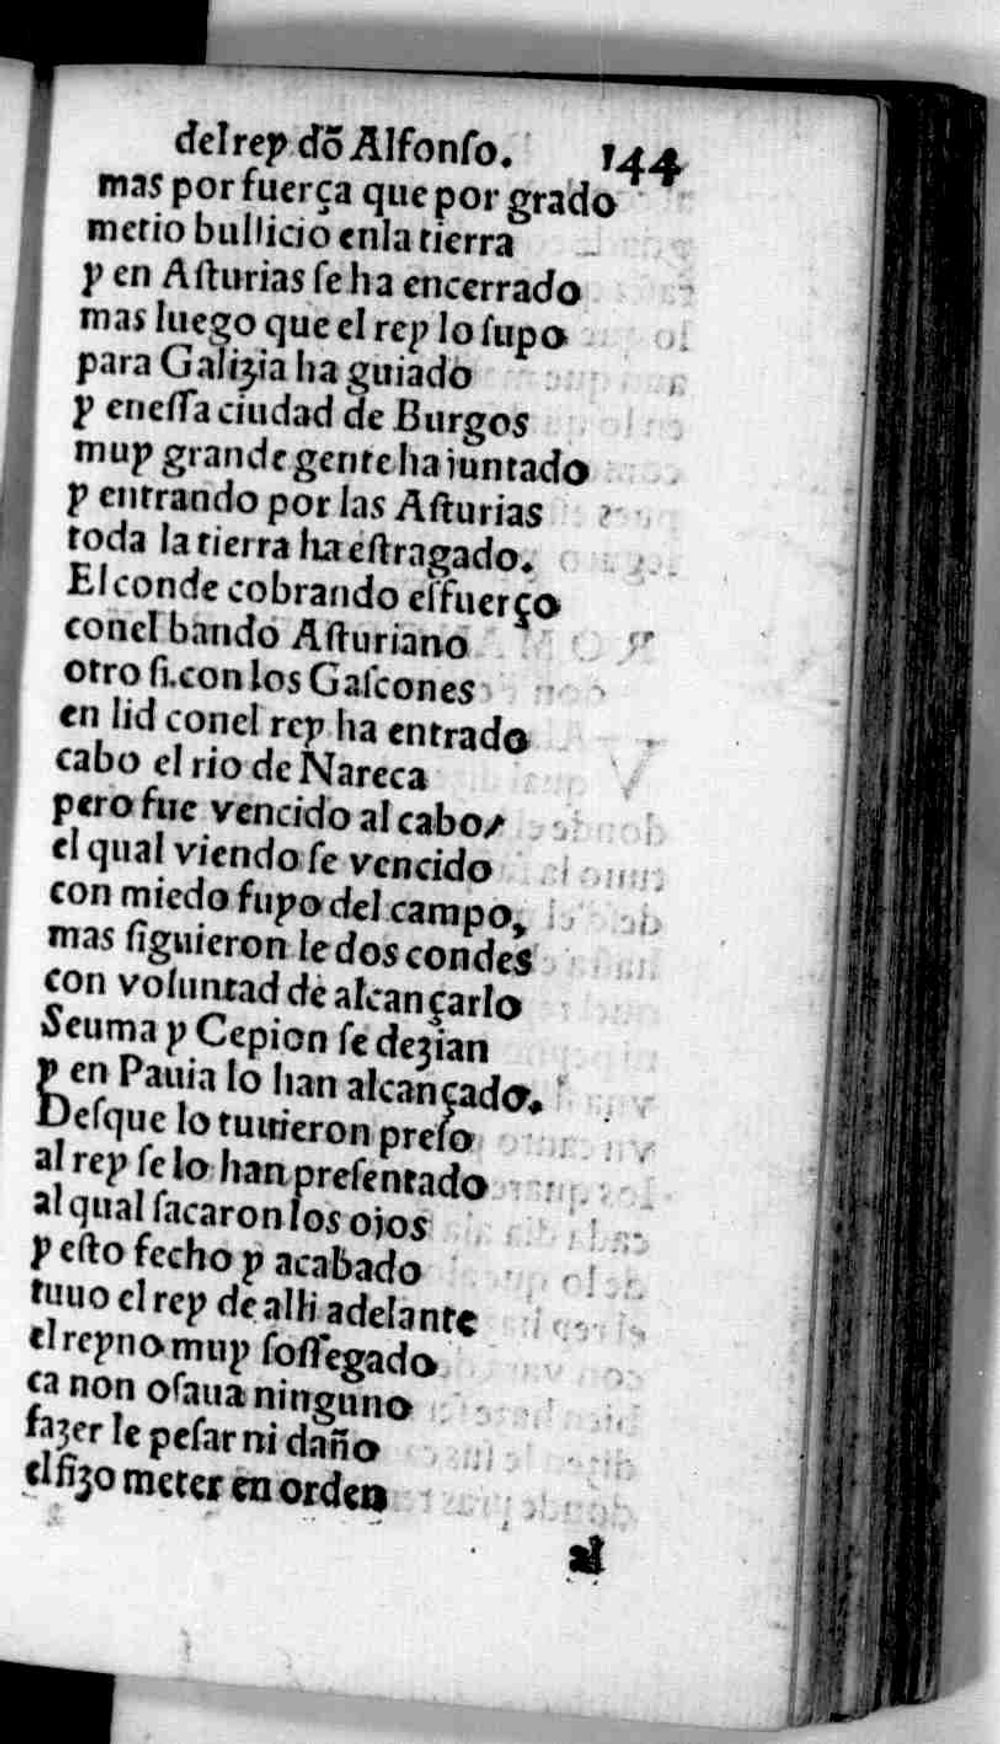 del rey dõ Alfonſo. 144
mas por fuerça que por grado
metio bullicio enla tierra
y en Aſturias ſe ha encerrado
mas luego que el rey lo ſupo
para Galizia ha guiado
y eneſſa ciudad de Burgos
muy grande gente ha iuntado
y entrando por las Aſturias
toda la tierra ha eſtragado.
El conde cobrando eſfuerço
conel bando Aſturiano
otro ſi.con los Gaſcones
en lid conel rey ha entrado
cabo el rio de Nareca
pero fue vencido al cabo,
el qual viendo ſe vencido
con miedo fuyo del campo,
mas ſiguieron le dos condes
con voluntad de alcançarlo
Seuma y Cepion ſe dezian
y en Pauia lo han alcançado.
Deſque lo tuuieron preſo
al rey ſe lo han preſentado
al qual ſacaron los ojos
y eſto fecho y acabado
tuuo el rey de alli adelante
el reyno muy ſoſſegado
ca non oſaua ninguno
fazer le peſar ni daño
el fizo meter en orden
al